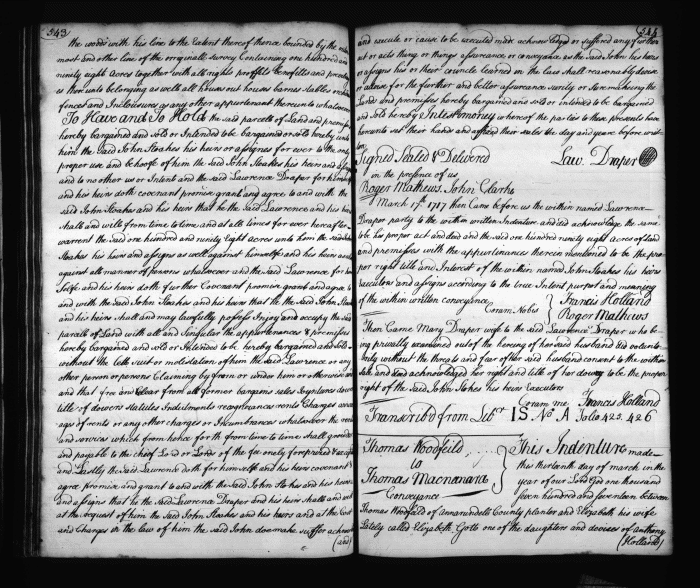 543
the woods with his line to the Extent thereof thence bounded by the
most and other line of the originall Survey Containing one hundred and
ninety eight Acres together with all rights profitts benefitts and
is thereunto belonging as well all houses out houses barns stables
fences and Inclosures as any other appurtenant thereon to whatsoever
To Have and To Hold the said parcell of Land and
hereby bargained and sold or Intended to be bargained or sold hereby unto
him the Said John Stoakes his heirs or assignes for ever to the only
proper use and behoofe of him the said John Stoakes his heirs and
and to no other us or Intent and the said Lawrence Draper for himself
and his heirs doth covenant promise grant and agree to and with the
said John Stoakes and his heirs that he the Said Lawrence and his heirs
shall and will from time to time and at all times for ever hereafter
warrent the said one hundred and ninety eight acres unto him the said John
Stoakes his heirs and assigns as well against himselfe and his heirs as
against all manner of persons whatsoever and the said Lawrence for him
Selfe and his heirs doth further Covenant promise grant and agree to
and with the Said John Stoakes and his heirs that he the Said John Stoakes
and his heirs shall and may lawfully posses Injoy and occupy the said
parcell of Land with all and Singular the appurtenances & premisses
hereby bargained and sold or Intended to be hereby bargained and sold
without the lett suit or molistation of him the said Lawrence or any
other person or persons Claiming by from or under him or otherwise
and that free and Clear from all former bargains sales Joyntures dower
title of dowers statutes Indictments recognizances rents Charges
ages of rents or any other charges or Incumbrances whatsoever the
and services which from hence forth from time to time shall
and payable to the chief Lord or Lords of the fee onely
and Lastly the Said Lawrence doth for himself and his heirs covenant
agree promise and grant to and with the Said John Stokes and his heirs
and assigns that he the Said Lawrence Draper and his heirs shall and will
at the request of him the said John Stoakes and his heirs and at the Cost
and Charges in the law of him the said John doe make suffer acknow
(and)
544
and execute or cause to be executed made acknowledged or suffered any further
act or acts thing or things assurance or conveyance as the said John his heirs
or assigns his or their councle learned on the law shall reasonably devise
or advise for the further and better assurance surity or sure making the
Land and premisses hereby bargained and sold or intended to be bargained
and sold hereby Intestimoney whereof the parties to these presents have
hereunto sett their hands and affixed their seales the day and yeare before writ
ten
Signed Sealed & Delivered Law. Draper
in the presence of us
Roger Mathews. John Clarke
March 17th 1717 then Came before us the within named Lawrence
Draper party to the within written Indenture and did acknowledge the same
to be his proper act and deed and the said one hundred ninety eight acres of land
and premisses with the appurtinances therein mentioned to be the pro
per right title and Interest of the within named John Stoakes his heirs
Executors and assigns according to the true Intent purport and meaning
of the within written conveyance Coram Nobis Francis Holland
Roger Mathews
Then Came Mary Draper wife to the said Lawrence Draper who be
ing privatly examined out of the hereing of her said husband did volenta
rily without the threats and fear of her said husband consent to the within
sale and acknowledged her right and title of her dowry to be the proper
right of the Said John Stokes his heirs Executors
Coram me Francis Holland
Transcrib'd from Liber IS. No A Folio 425. 426
Thomas Woodfeild
to
Thomas Macnamara
Conveyance
This Indenture made
this thirteenth day of march in the
year of our Lord God one thousand
seven hundred and seventeen between
Thomas Woodfeild of Annarundell County planter and Elizabeth his wife
Lately called Elizabeth Gott one of the daughters and devisees of anthony
(Holland)